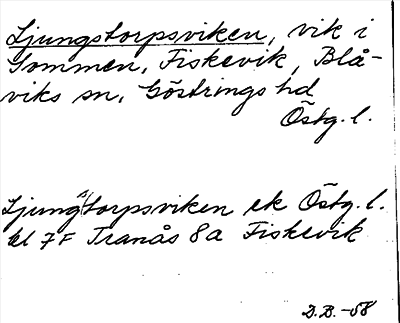 Ljungstorpsviken, vik i
Sommen, Fiskevik, Blå-
viks sn, Göstrings hd
Östg. l.
Ljungstorpsviken ek Östg. l.
bl 7F Tranås 8a Fiskevik
D.B. -58